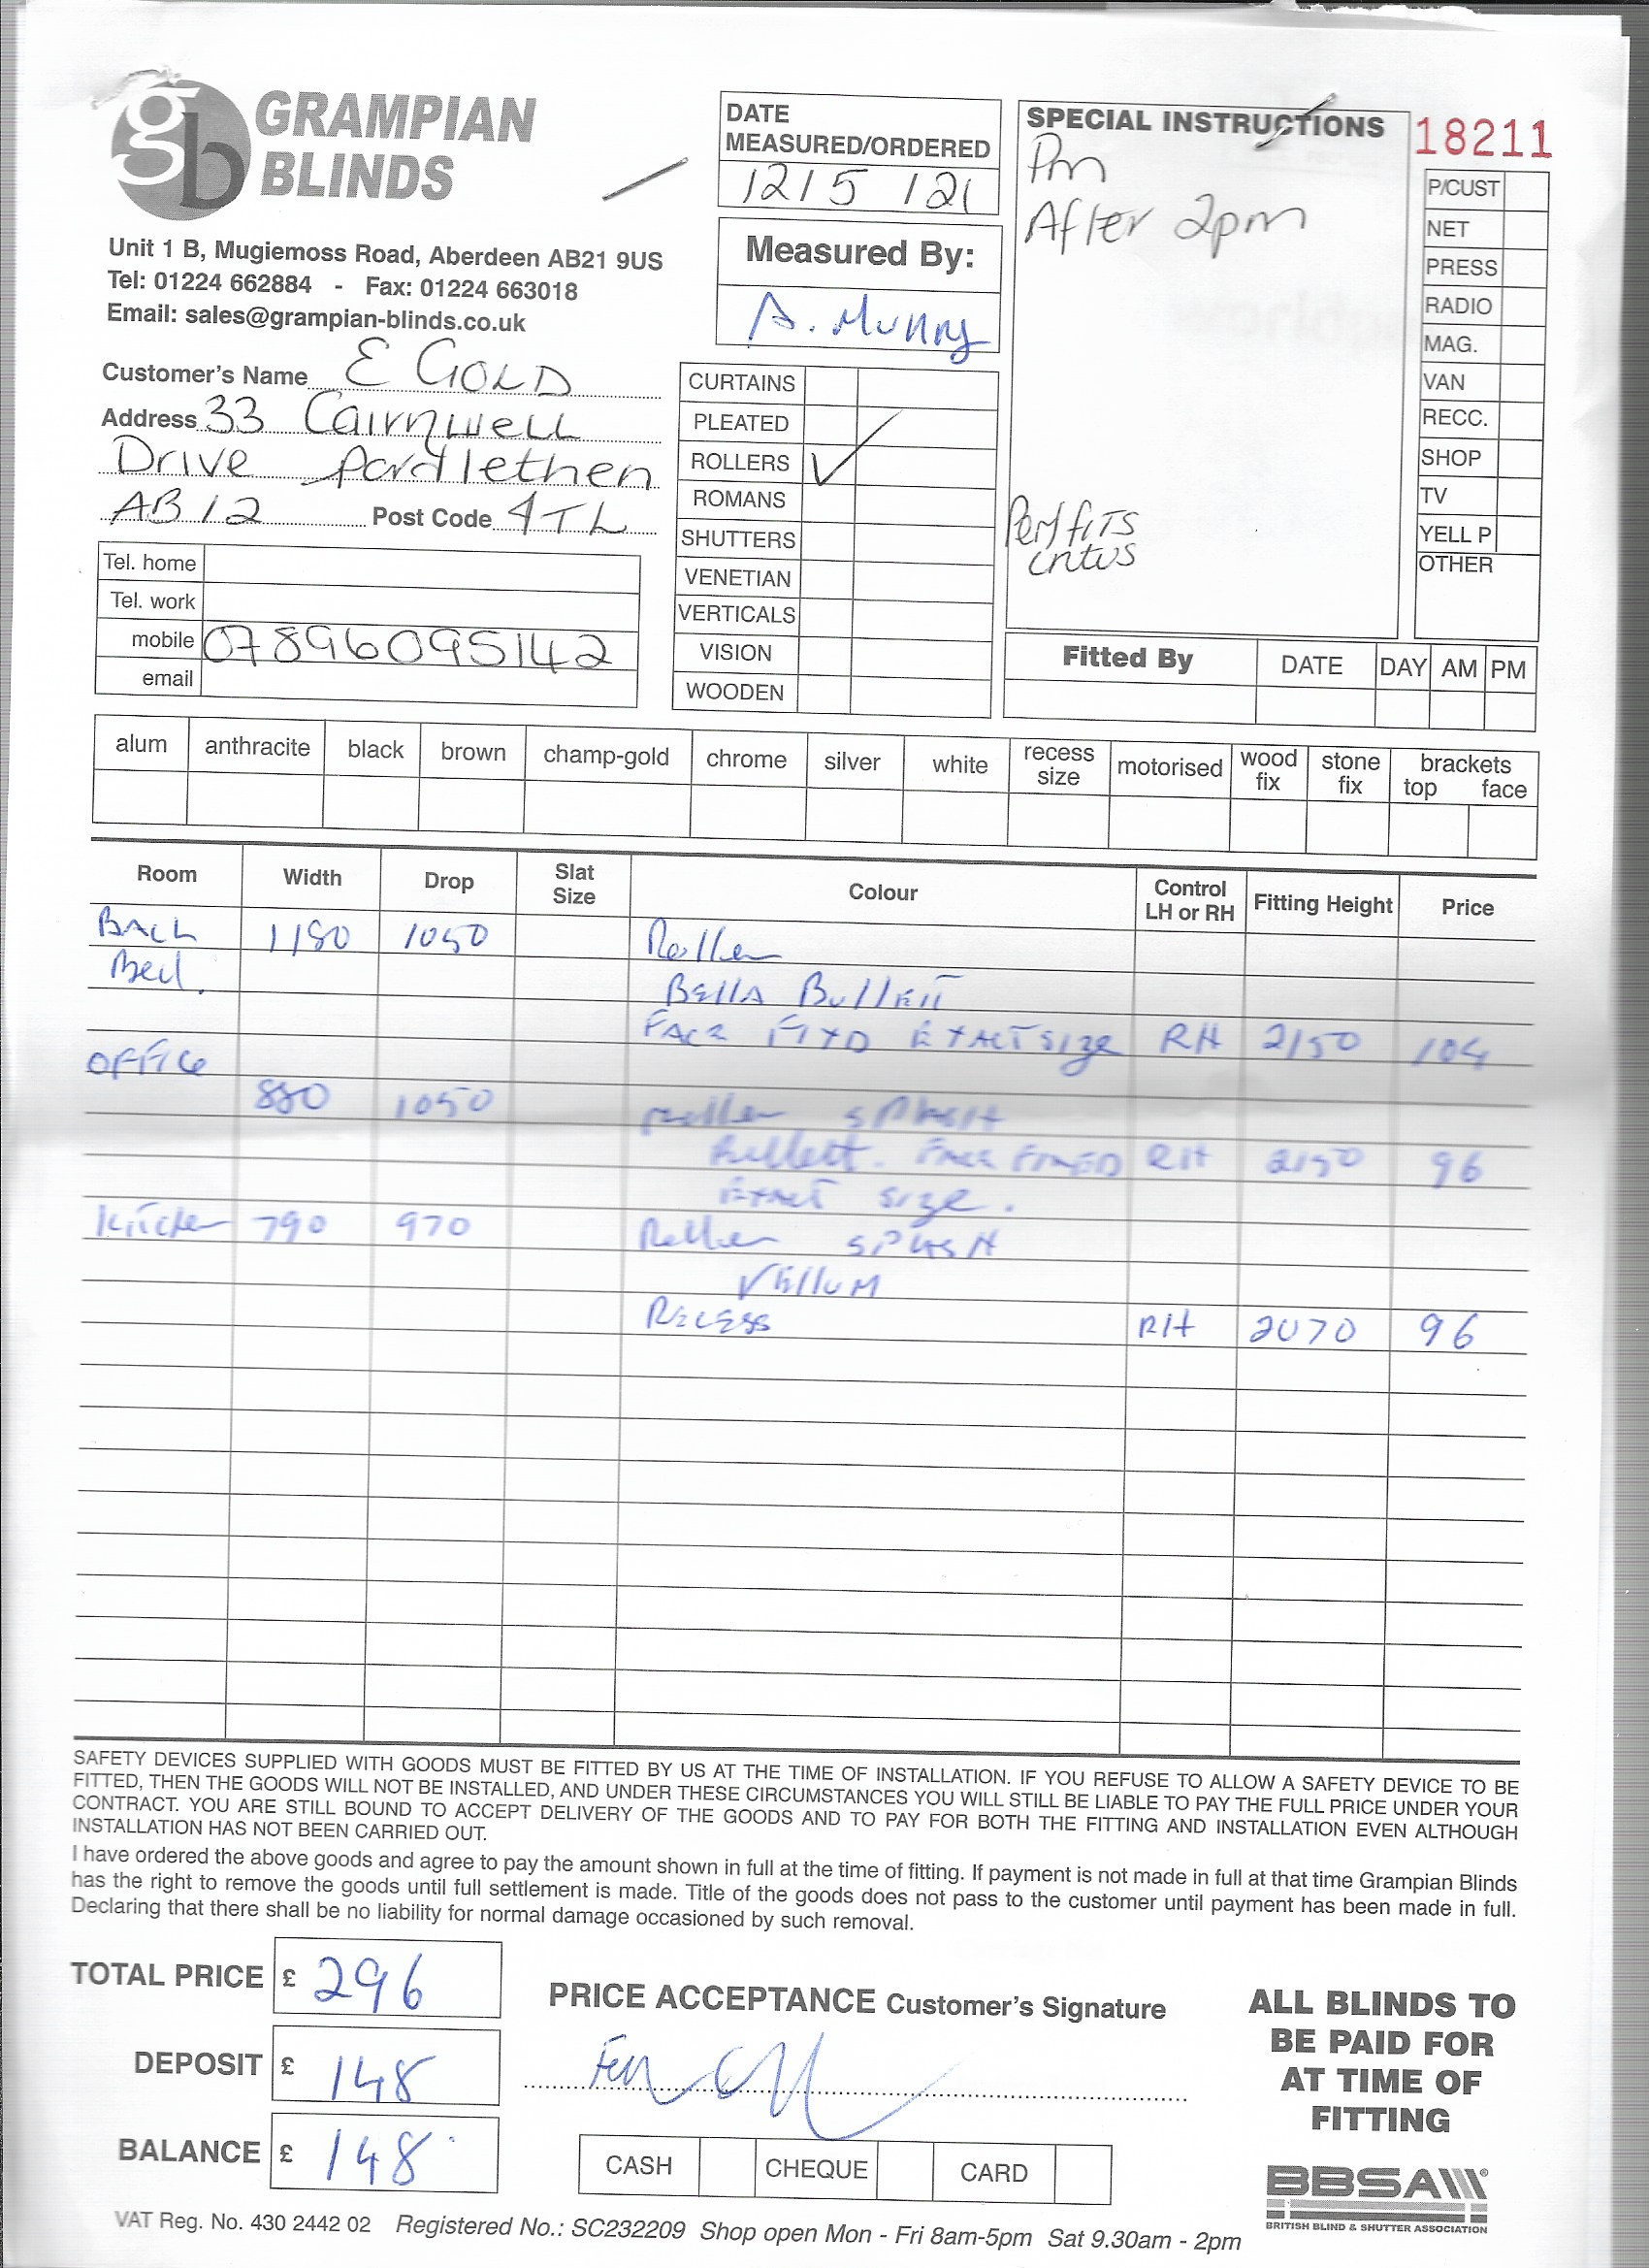 gb GRAMPIAN
BLINDS
Unit 1 B, Mugiemoss Road, Aberdeen AB21 9US
Tel: 01224 662884 - Fax: 01224 663018
Email: sales@grampian-blinds.co.uk
DATE
MEASURED/ORDERED
12/5/21
Measured By:
A. Murray
SPECIAL INSTRUCTIONS
Pm
After 2pm
18211
P/CUST
NET
PRESS
RADIO
MAG.
VAN
RECC.
SHOP
TV
YELL P
OTHER
Customer's Name E GOLD
Address 33 Cairnwell
Drive Portlethen
AB12 Post Code 4TL
Tel. home
Tel. work
mobile 07896095142
email
CURTAINS
PLEATED
ROLLERS ✓
ROMANS
SHUTTERS
VENETIAN
VERTICALS
VISION
WOODEN
Fitted By DATE DAY AM PM
alum anthracite black brown champ-gold chrome silver white recess size motorised wood fix stone fix brackets top face
Room Width Drop Slat Size Colour Control LH or RH Fitting Height Price
BACK 1180 1050 Roller
Bed.
BELLA BULLETT
FACE FIXD EXACT SIZE RH 2150 104
OFFICE
880 1050 Roller SPLASH
Bullett. FACE FIXED RH 2150 96
EXACT SIZE.
Kitchen 790 970 Roller SPLASH
VELLUM
RECESS RH 2070 96
SAFETY DEVICES SUPPLIED WITH GOODS MUST BE FITTED BY US AT THE TIME OF INSTALLATION. IF YOU REFUSE TO ALLOW A SAFETY DEVICE TO BE
FITTED, THEN THE GOODS WILL NOT BE INSTALLED, AND UNDER THESE CIRCUMSTANCES YOU WILL STILL BE LIABLE TO PAY THE FULL PRICE UNDER YOUR
CONTRACT. YOU ARE STILL BOUND TO ACCEPT DELIVERY OF THE GOODS AND TO PAY FOR BOTH THE FITTING AND INSTALLATION EVEN ALTHOUGH
INSTALLATION HAS NOT BEEN CARRIED OUT.
I have ordered the above goods and agree to pay the amount shown in full at the time of fitting. If payment is not made in full at that time Grampian Blinds
has the right to remove the goods until full settlement is made. Title of the goods does not pass to the customer until payment has been made in full.
Declaring that there shall be no liability for normal damage occasioned by such removal.
TOTAL PRICE £ 296
DEPOSIT £ 148
BALANCE £ 148
PRICE ACCEPTANCE Customer's Signature
CASH CHEQUE CARD
ALL BLINDS TO
BE PAID FOR
AT TIME OF
FITTING
BBSA
BRITISH BLIND & SHUTTER ASSOCIATION
VAT Reg. No. 430 2442 02 Registered No.: SC232209 Shop open Mon - Fri 8am-5pm Sat 9.30am - 2pm